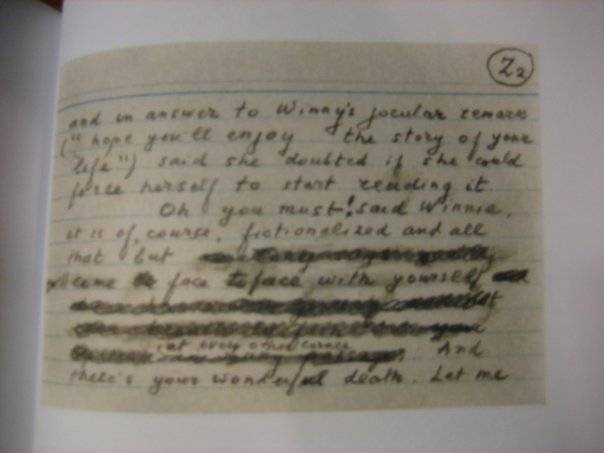 Z2
and in answer to Winny's jocular remark
("hope you'll enjoy the story of your
life") said she doubted if she could
force herself to start reading it.
Oh you must! said Winnie,
it is of, course, fictionalized and all
that but
you'll come face to face with yourself
at every other corner. And
there's your wonderful death. Let me